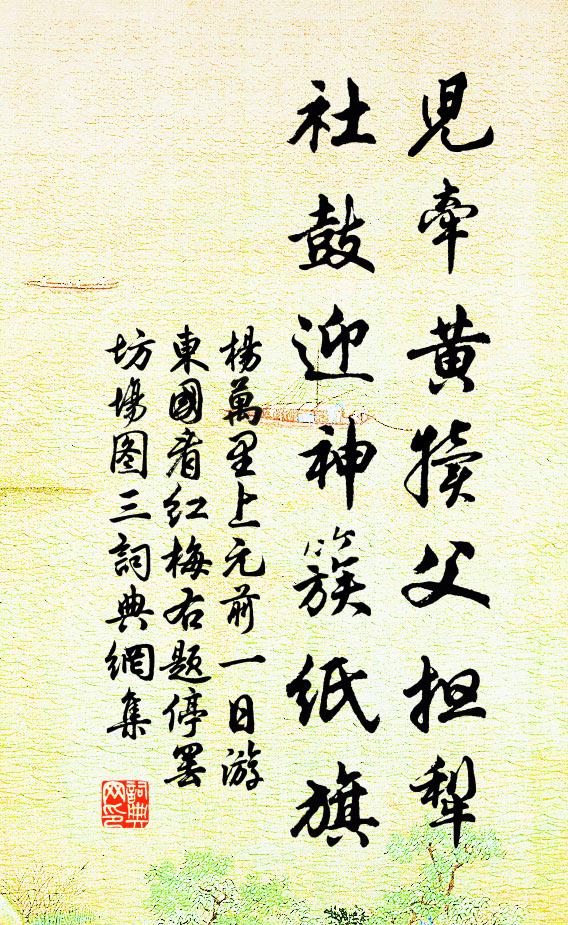 児牽黄犢父担犁
社鼓迎神簇纸旗
楊萬里上元前一日游
東國看红梅右题停罢
坊場图三詞典網集
詞典
网印